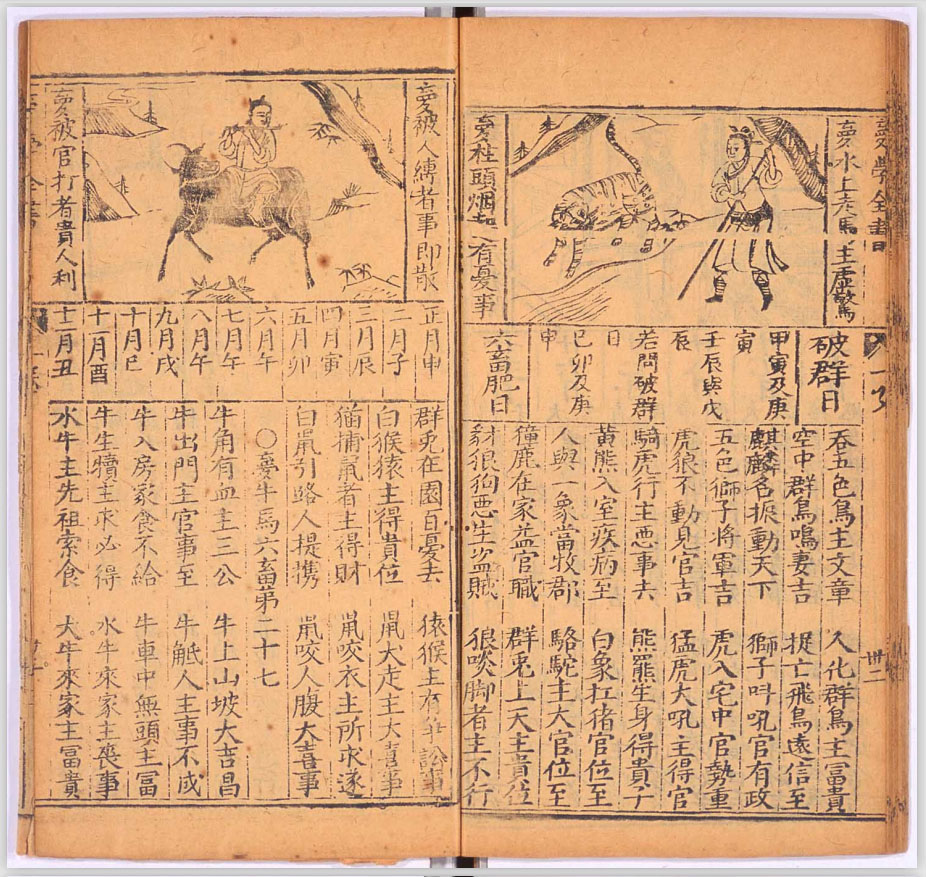 夢學全書
卅二
夢水上走馬主虛驚
夢柱頭烟起有憂事
破群日
甲寅及庚
寅
壬辰與戊
辰
若問破群
日
己卯及庚
申
六畜肥日
吞五色鳥主文章　人化群鳥主富貴
空中群鳥鳴妻吉　捉亡飛鳥遠信至
麒麟名振動天下　獅子叫吼官有政
五色獅子將軍吉　虎入宅中官勢重
虎狼不動見官吉　猛虎大吼主得官
騎虎行主惡事去　熊羆生身得貴子
黃熊入室疾病至　白象扛猪官位至
人與一象當牧郡　駱駝主大官位至
獐鹿在家益官職　群兎上天主貴位
豺狼狗惡生盗賊　狼啖脚者主不行
夢被人縛者事即散
夢被官打者貴人利
正月申
二月子
三月辰
四月寅
五月卯
六月午
七月午
八月午
九月戌
十月巳
十一月酉
十二月丑
群兎在園百憂去　猿猴主有爭訟事
白猴猿主得貴位　鼠大走主大喜事
猫捕鼠者主得財　鼠咬衣主所求遂
白鼠引路人提携　鼠咬人腹大喜事
○夢牛馬六畜第二十七
牛角有血主三公　牛上山坡大吉昌
牛出門主官事至　牛觝人主事不成
牛入房家食不給　牛車中無頭主富
牛生犢主求必得　水牛來家主喪事
水牛主先祖索食　大牛來家主富貴